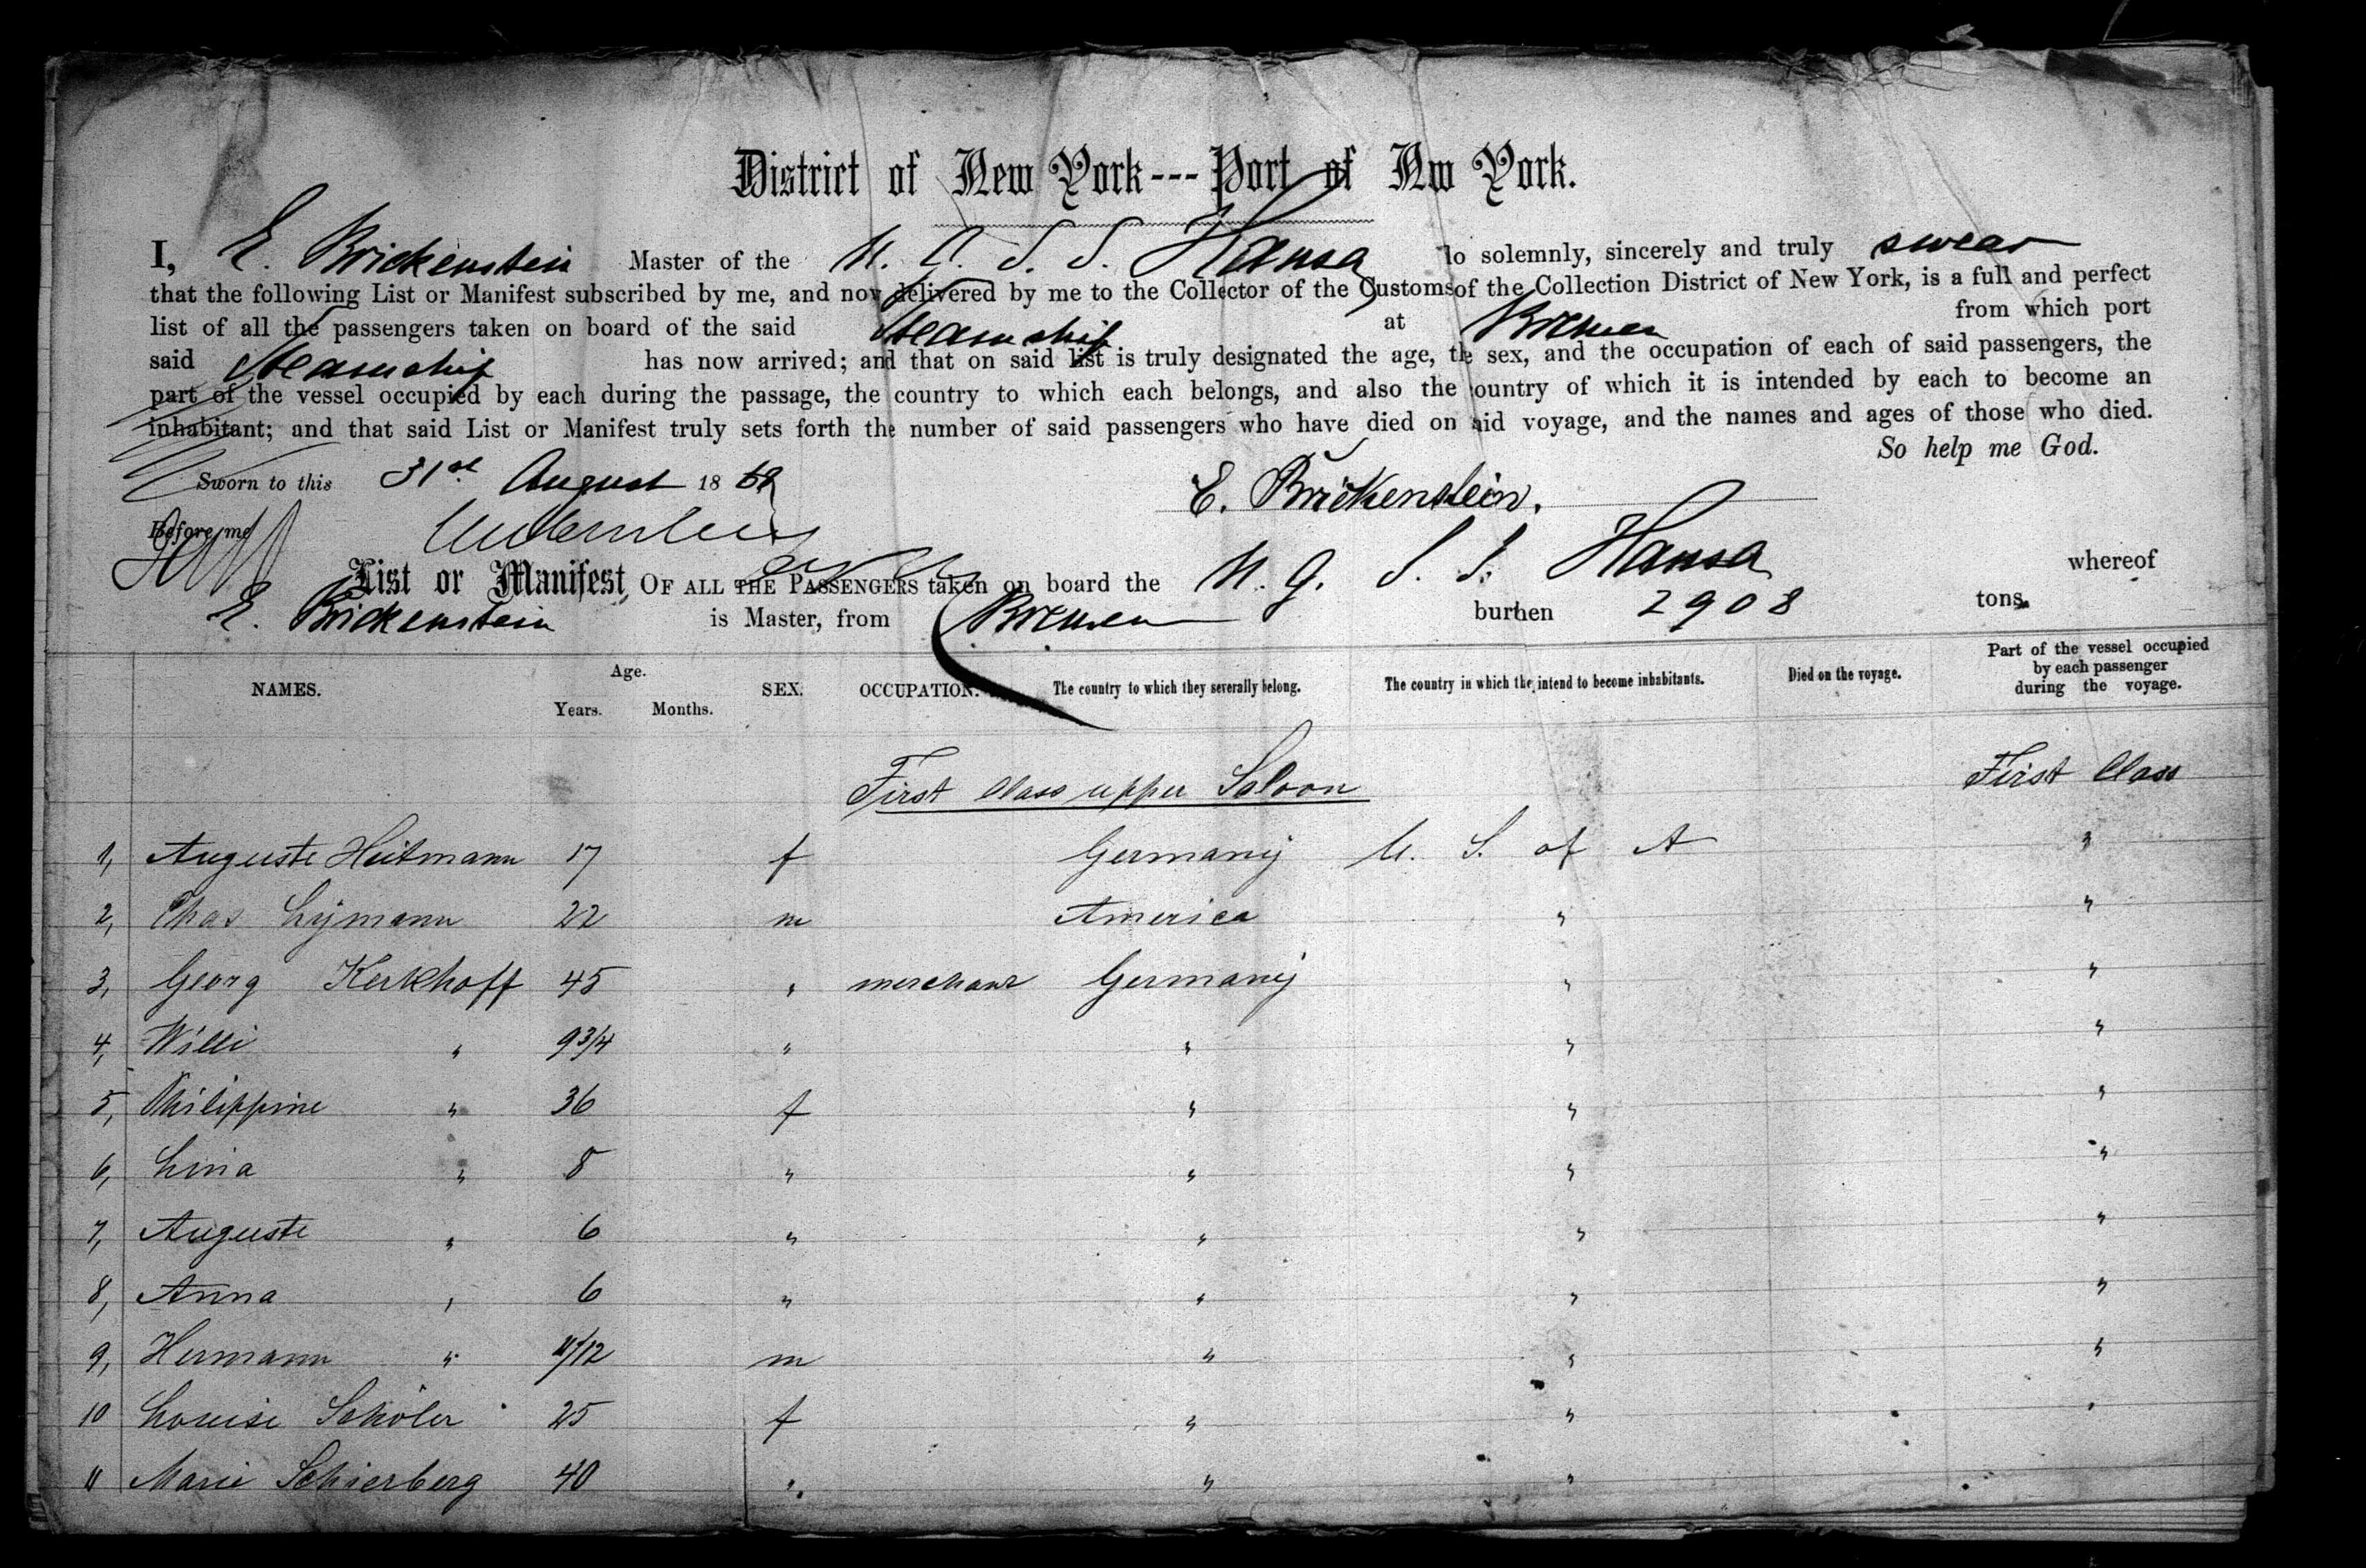 District of New York --- Port of Nw York.
I, E. Brickenstein Master of the N. G. S. S. Hansa do solemnly, sincerely and truly swear
that the following List or Manifest subscribed by me, and now delivered by me to the Collector of the Customs of the Collection District of New York, is a full and perfect
list of all the passengers taken on board of the said Steamship at Bremen from which port
said Steamship has now arrived; and that on said list is truly designated the age, the sex, and the occupation of each of said passengers, the
part of the vessel occupied by each during the passage, the country to which each belongs, and also the country of which it is intended by each to become an
inhabitant; and that said List or Manifest truly sets forth the number of said passengers who have died on said voyage, and the names and ages of those who died.
So help me God.
Sworn to this 31st August 18
E. Brickenstein.
Before me
List or Manifest OF ALL THE PASSENGERS taken on board the N. G. S. S. Hansa whereof
E. Brickenstein is Master, from Bremen burthen 2908 tons.
NAMES. Age. Years. Months. SEX. OCCUPATION. The country to which they severally belong. The country in which the intend to become inhabitants. Died on the voyage. Part of the vessel occupied by each passenger during the voyage.
First Class upper Saloon First Class
1, Auguste Heitmann 17 f Germany U. S. of A "
2, Chas Lymann 22 m America " "
3, Georg Kerkhoff 45 " merchant Germany " "
4, Willi " 9 3/4 " " " "
5, Philippine " 36 f " " "
6, Lina " 8 " " " "
7, Auguste " 6 " " " "
8, Anna " 6 " " " "
9, Hermann " 11/12 m " " "
10 Louise Schöler 25 f " " "
11 Marie Schierberg 40 " " "